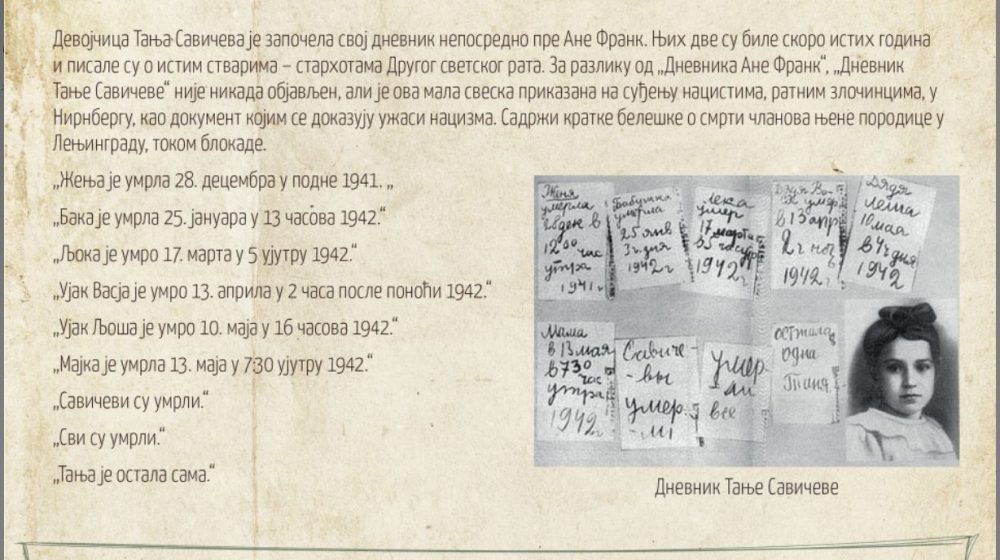 Девојчица Тања Савичева је започела свој дневник непосредно пре Ане Франк. Њих две су биле скоро истих година
и писале су о истим стварима – стархотама Другог светског рата. За разлику од „Дневника Ане Франк“, „Дневник
Тање Савичеве“ није никада објављен, али је ова мала свеска приказана на суђењу нацистима, ратним злочинцима, у
Нирнбергу, као документ којим се доказују ужаси нацизма. Садржи кратке белешке о смрти чланова њене породице у
Лењинграду, током блокаде.
„Жења је умрла 28. децембра у подне 1941. „
„Бака је умрла 25. јануара у 13 часова 1942.“
„Љока је умро 17. марта у 5 ујутру 1942.“
„Ујак Васја је умро 13. априла у 2 часа после поноћи 1942.“
„Ујак Љоша је умро 10. маја у 16 часова 1942.“
„Мајка је умрла 13. маја у 730 ујутру 1942.“
„Савичеви су умрли.“
„Сви су умрли.“
„Тања је остала сама.“
Женя
умерла
28 дек в
12 00 час
утра
1941 г
Бабушка
умерла
25 янв
3 ч дня
1942 г
Лека
умер
17 марта
в 5 час утр
1942 г
Дядя Ва
умер
в 13 апр
2 ч ноч
1942 г
Дядя
Леша
10 мая
в 4 ч дня
1942
Мама
в 13 мая
в 7 30 час
утра
1942 г
Савиче-
-вы
умер-
-ли
умер-
-ли
все
осталась
одна
Таня
Дневник Тање Савичеве